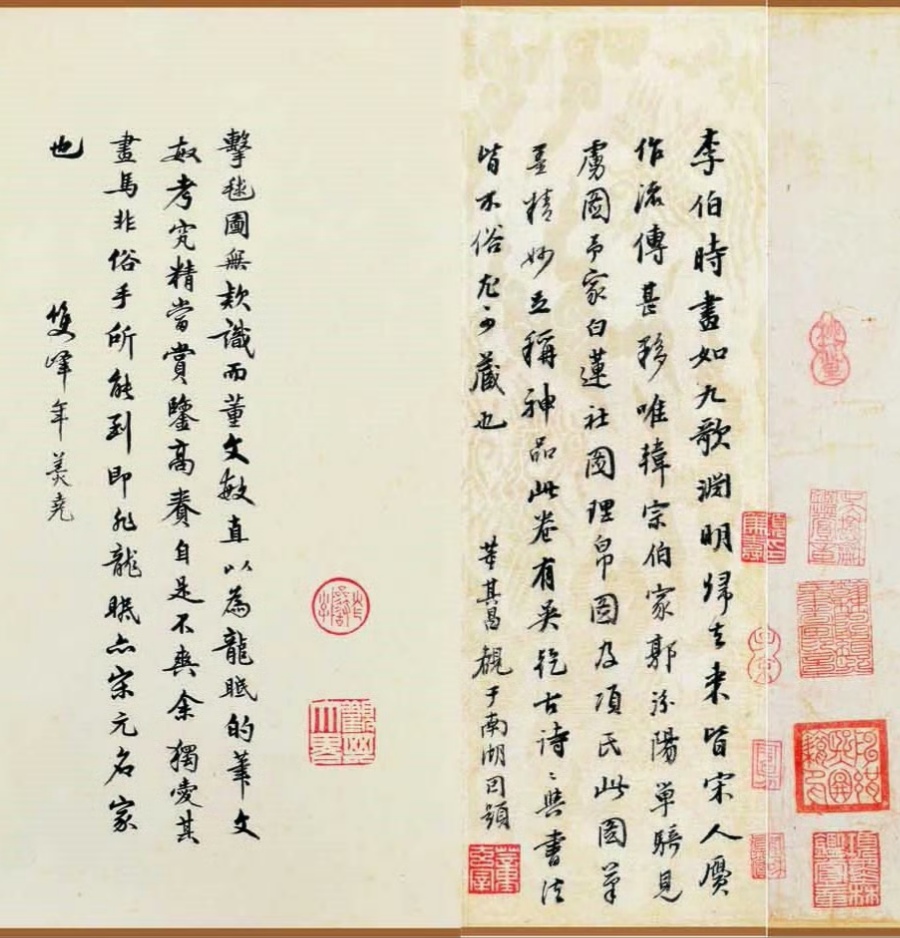 李伯時畫如九歌淵明歸去來皆宋人贗
作流傳甚夥唯韓宗伯家郭汾陽單騎見
虜圖予家白蓮社圖理帛圖及項氏此圖筆
墨精妙立稱神品此卷有吳說古詩〻與書法
皆不俗尤可藏也
董其昌觀于南湖因題
擊毬圖無款識而董文敏直以為龍眠的筆文
敏考究精當賞鑒高賽自是不爽余獨愛其
畫馬非俗手所能到即非龍眠亦宋元名家
也
雙峰年羹堯